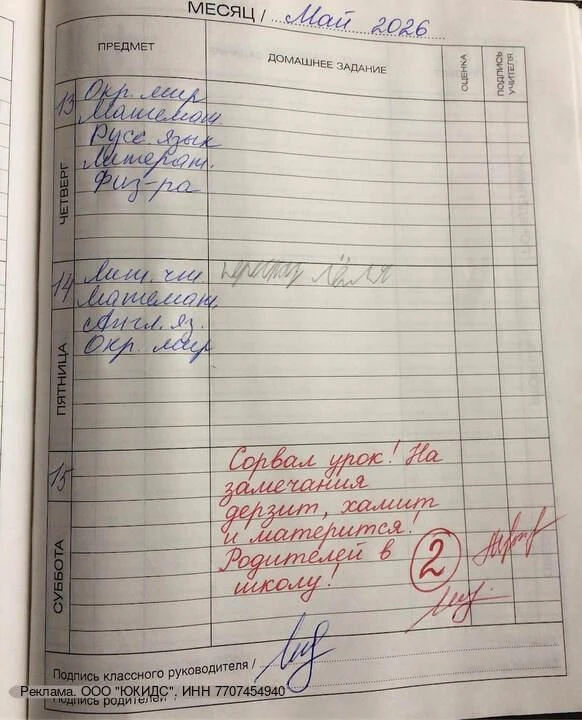 МЕСЯЦ / Май 2026
ПРЕДМЕТ
ДОМАШНЕЕ ЗАДАНИЕ
ОЦЕНКА
ПОДПИСЬ УЧИТЕЛЯ
13
ЧЕТВЕРГ
Окр. мир
Математ.
Русс. язык
Литерат.
Физ-ра
14
ПЯТНИЦА
Лит. чт
Математ.
Англ. яз.
Окр. мир
15
СУББОТА
Сорвал урок! На
замечания
дерзит, хамит
и матерится!
Родителей в
школу!
2
Подпись классного руководителя /
Подпись родителей
Реклама. ООО "ЮКИДС". ИНН 7707454940